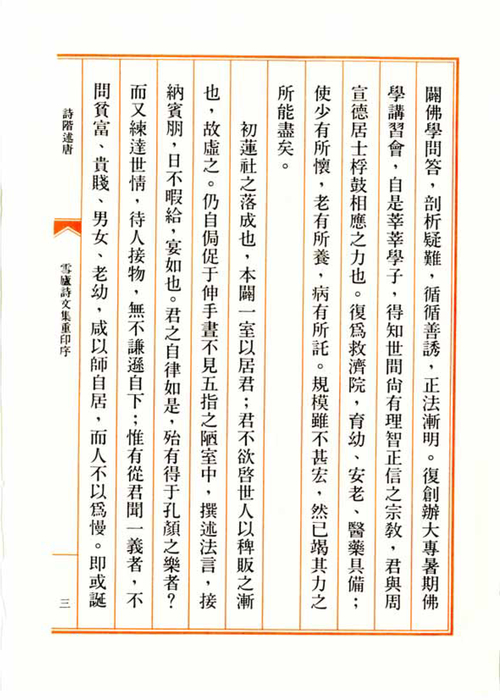 闢佛學問答，剖析疑難，循循善誘，正法漸明。復創辦大專暑期佛
學講習會，自是莘莘學子，得知世間尚有理智正信之宗教，君與周
宣德居士桴鼓相應之力也。復為救濟院，育幼、安老、醫藥具備；
使少有所懷，老有所養，病有所託。規模雖不甚宏，然已竭其力之
所能盡矣。
初蓮社之落成也，本闢一室以居君；君不欲啓世人以稗販之漸
也，故虛之。仍自侷促于伸手晝不見五指之陋室中，撰述法言，接
納賓朋，日不暇給，宴如也。君之自律如是，殆有得于孔顏之樂者？
而又練達世情，待人接物，無不謙遜自下；惟有從君聞一義者，不
問貧富、貴賤、男女、老幼，咸以師自居，而人不以為慢。即或誕
詩階述唐
雪廬詩文集重印序
三